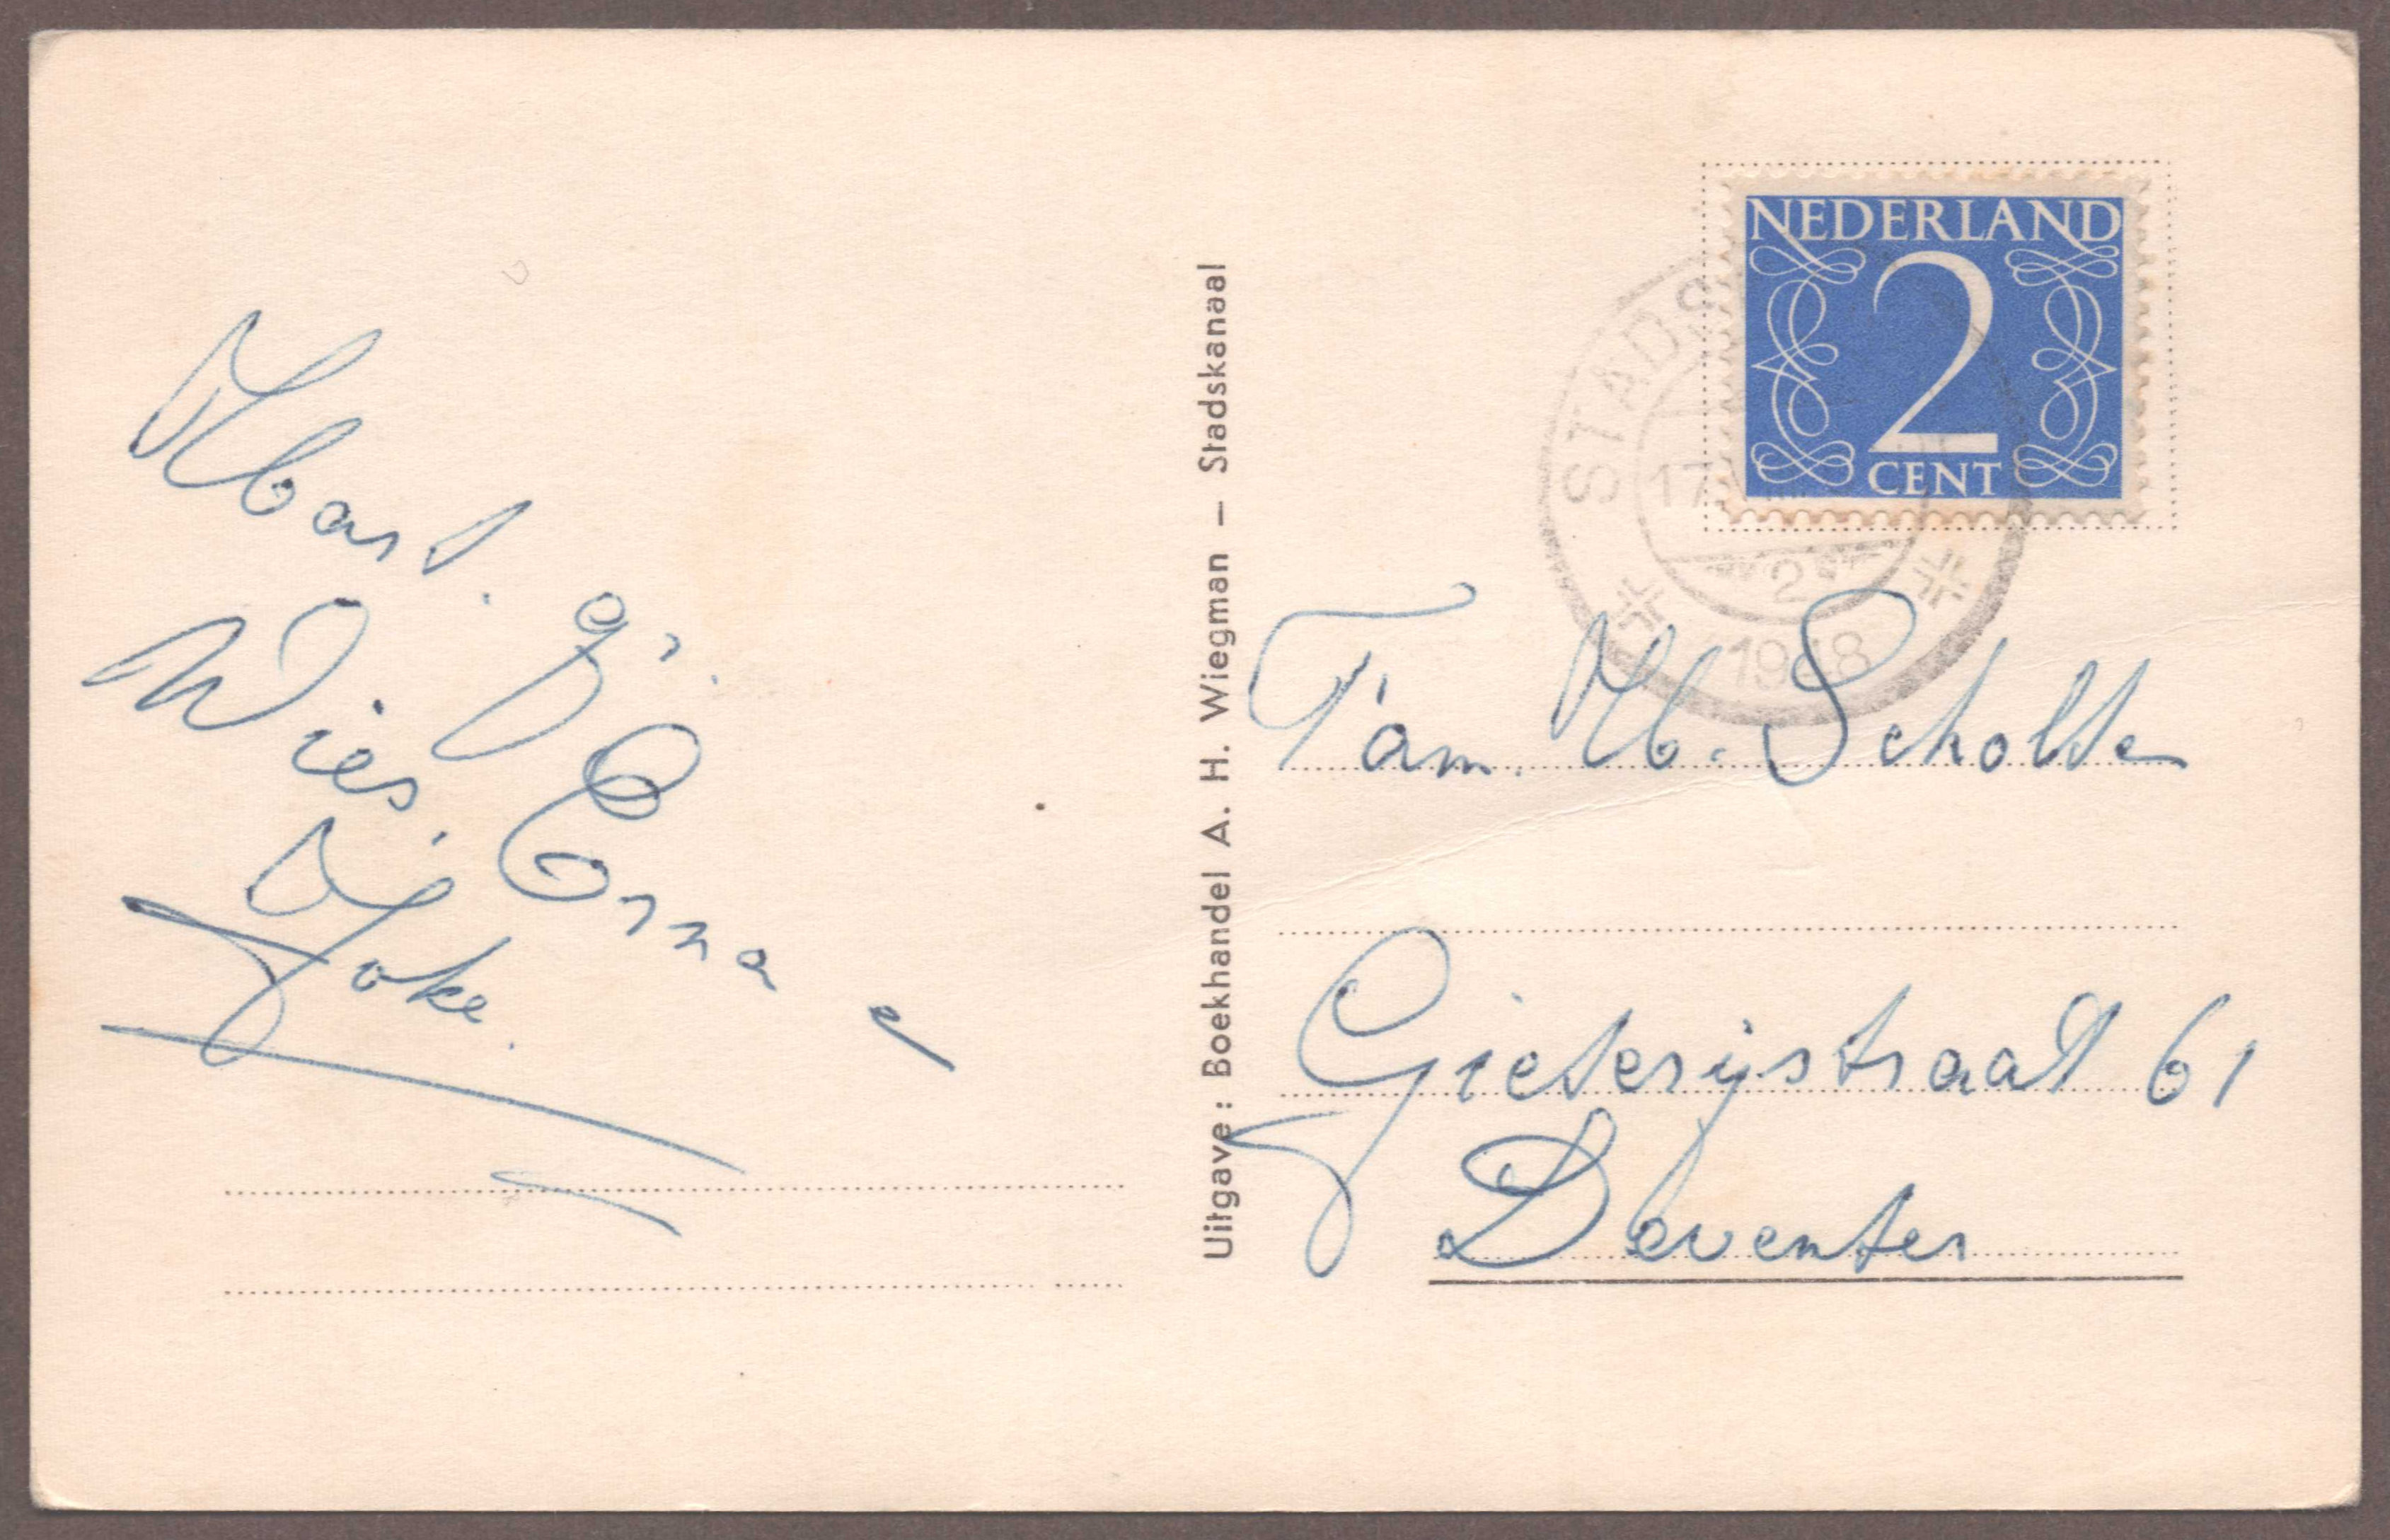 Hart. gr.
Wies Corna en
Joke.
Uitgave: Boekhandel A. H. Wiegman — Stadskanaal
NEDERLAND
2
CENT
STADS
17
2
1948
Fam. H. Scholte
Gieterijstraat 61
Deventer